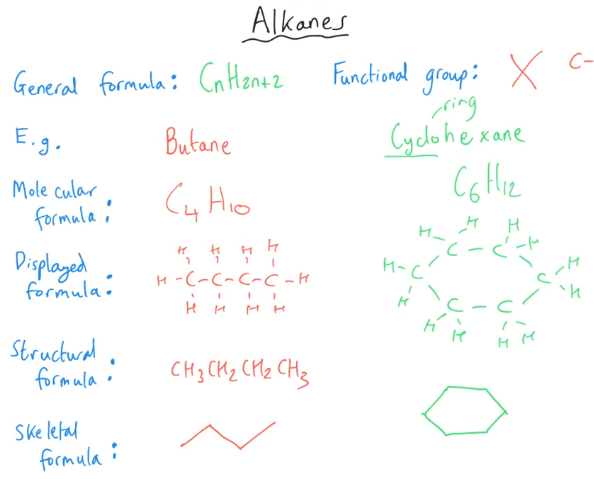 Alkanes
General formula: CnH2n+2 Functional group: X C-
ring
E.g. Butane Cyclohexane
Molecular formula: C4H10 C6H12
Displayed formula:
H H H H H H
H-C-C-C-C-H H C-C H
H H H H H-C C-H
H C-C H
H H H H
Structural formula: CH3CH2CH2CH3
Skeletal formula: